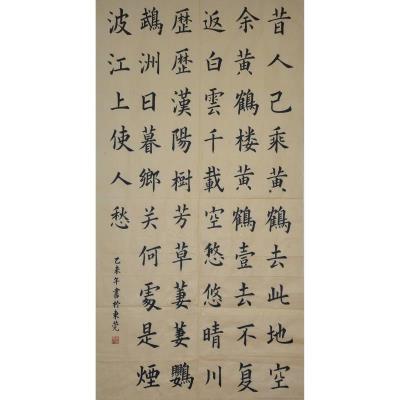 昔人已乘黄鶴去此地空
余黄鶴楼黄鶴壹去不復
返白雲千載空悠悠晴川
歷歷漢陽樹芳草萋萋鸚
鵡洲日暮鄉关何處是煙
波江上使人愁
乙未年書於東莞